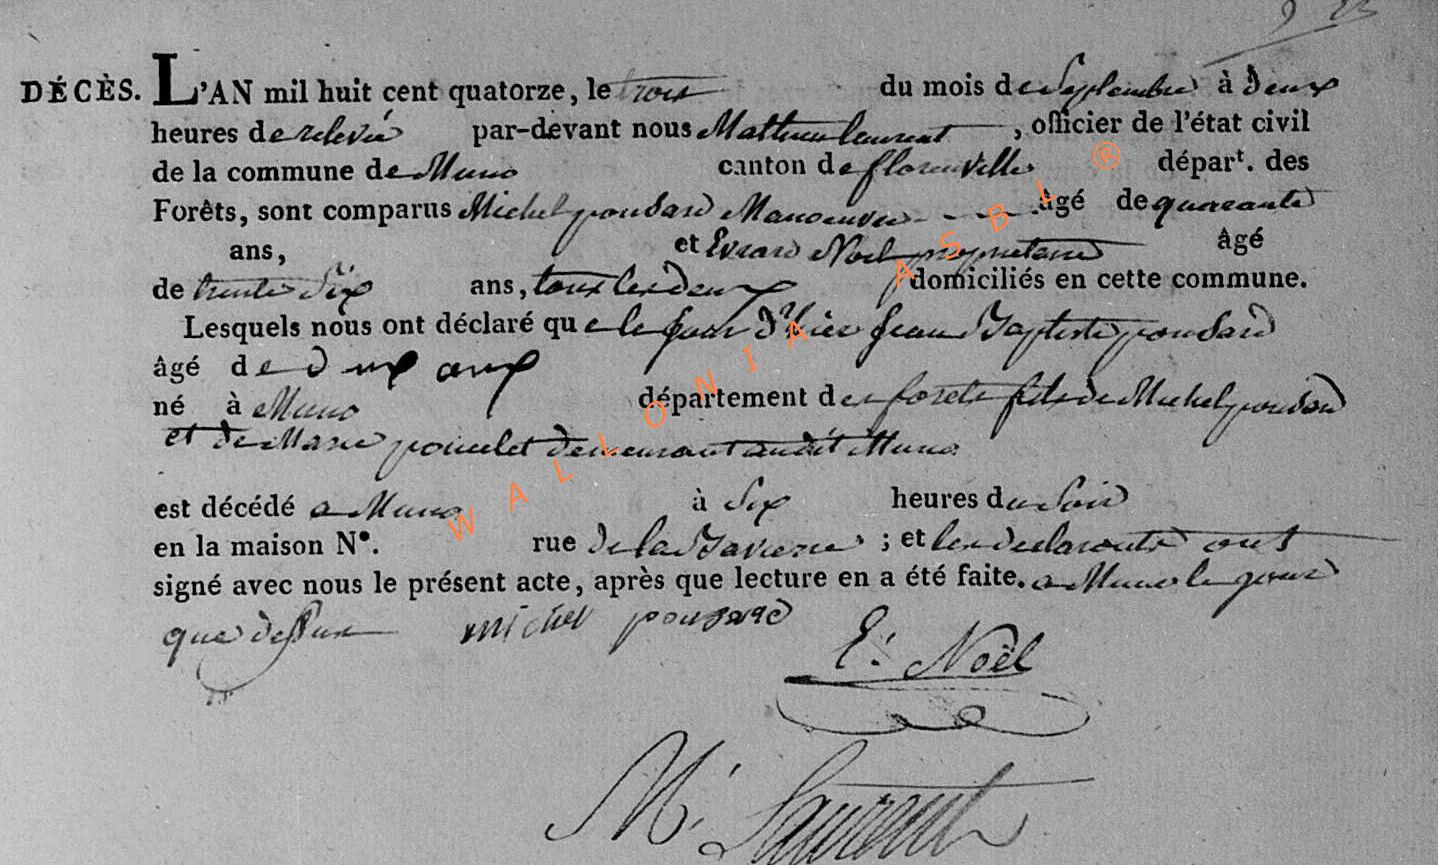 9 23
DÉCÈS. L'AN mil huit cent quatorze, le trois du mois de Septembre à deux
heures de relevée par-devant nous Mathieu laurent, officier de l'état civil
de la commune de Muno canton de florenville dépar^t. des
Forêts, sont comparus Michel poncard Manoeuvre âgé de quarante
ans, et Evrard Noel proprietaire âgé
de trente Six ans, tous les deux domiciliés en cette commune.
Lesquels nous ont déclaré que le jour d'hier jean Baptiste ponsard
âgé de deux ans
né à Muno département des forets fils de Michel ponsard
et de Marie poncelet demeurant audit Muno
est décédé a Muno à Six heures du Soir
en la maison N°. rue de la ; et les declarants ont
signé avec nous le présent acte, après que lecture en a été faite. a Muno le jour
que dessus michel ponsard
E: Noël
M: Laurent
WALLONIA ASBL ®